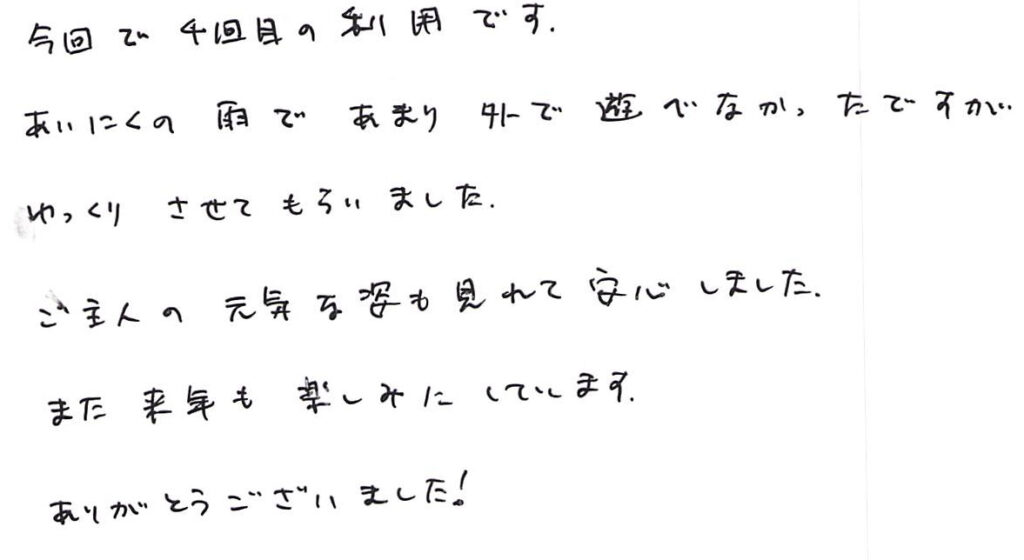 今回で4回目の利用です.
あいにくの雨であまり外で遊べなかったですが
ゆっくりさせてもらいました.
ご主人の元気な姿も見れて安心しました.
また来年も楽しみにしています.
ありがとうございました!